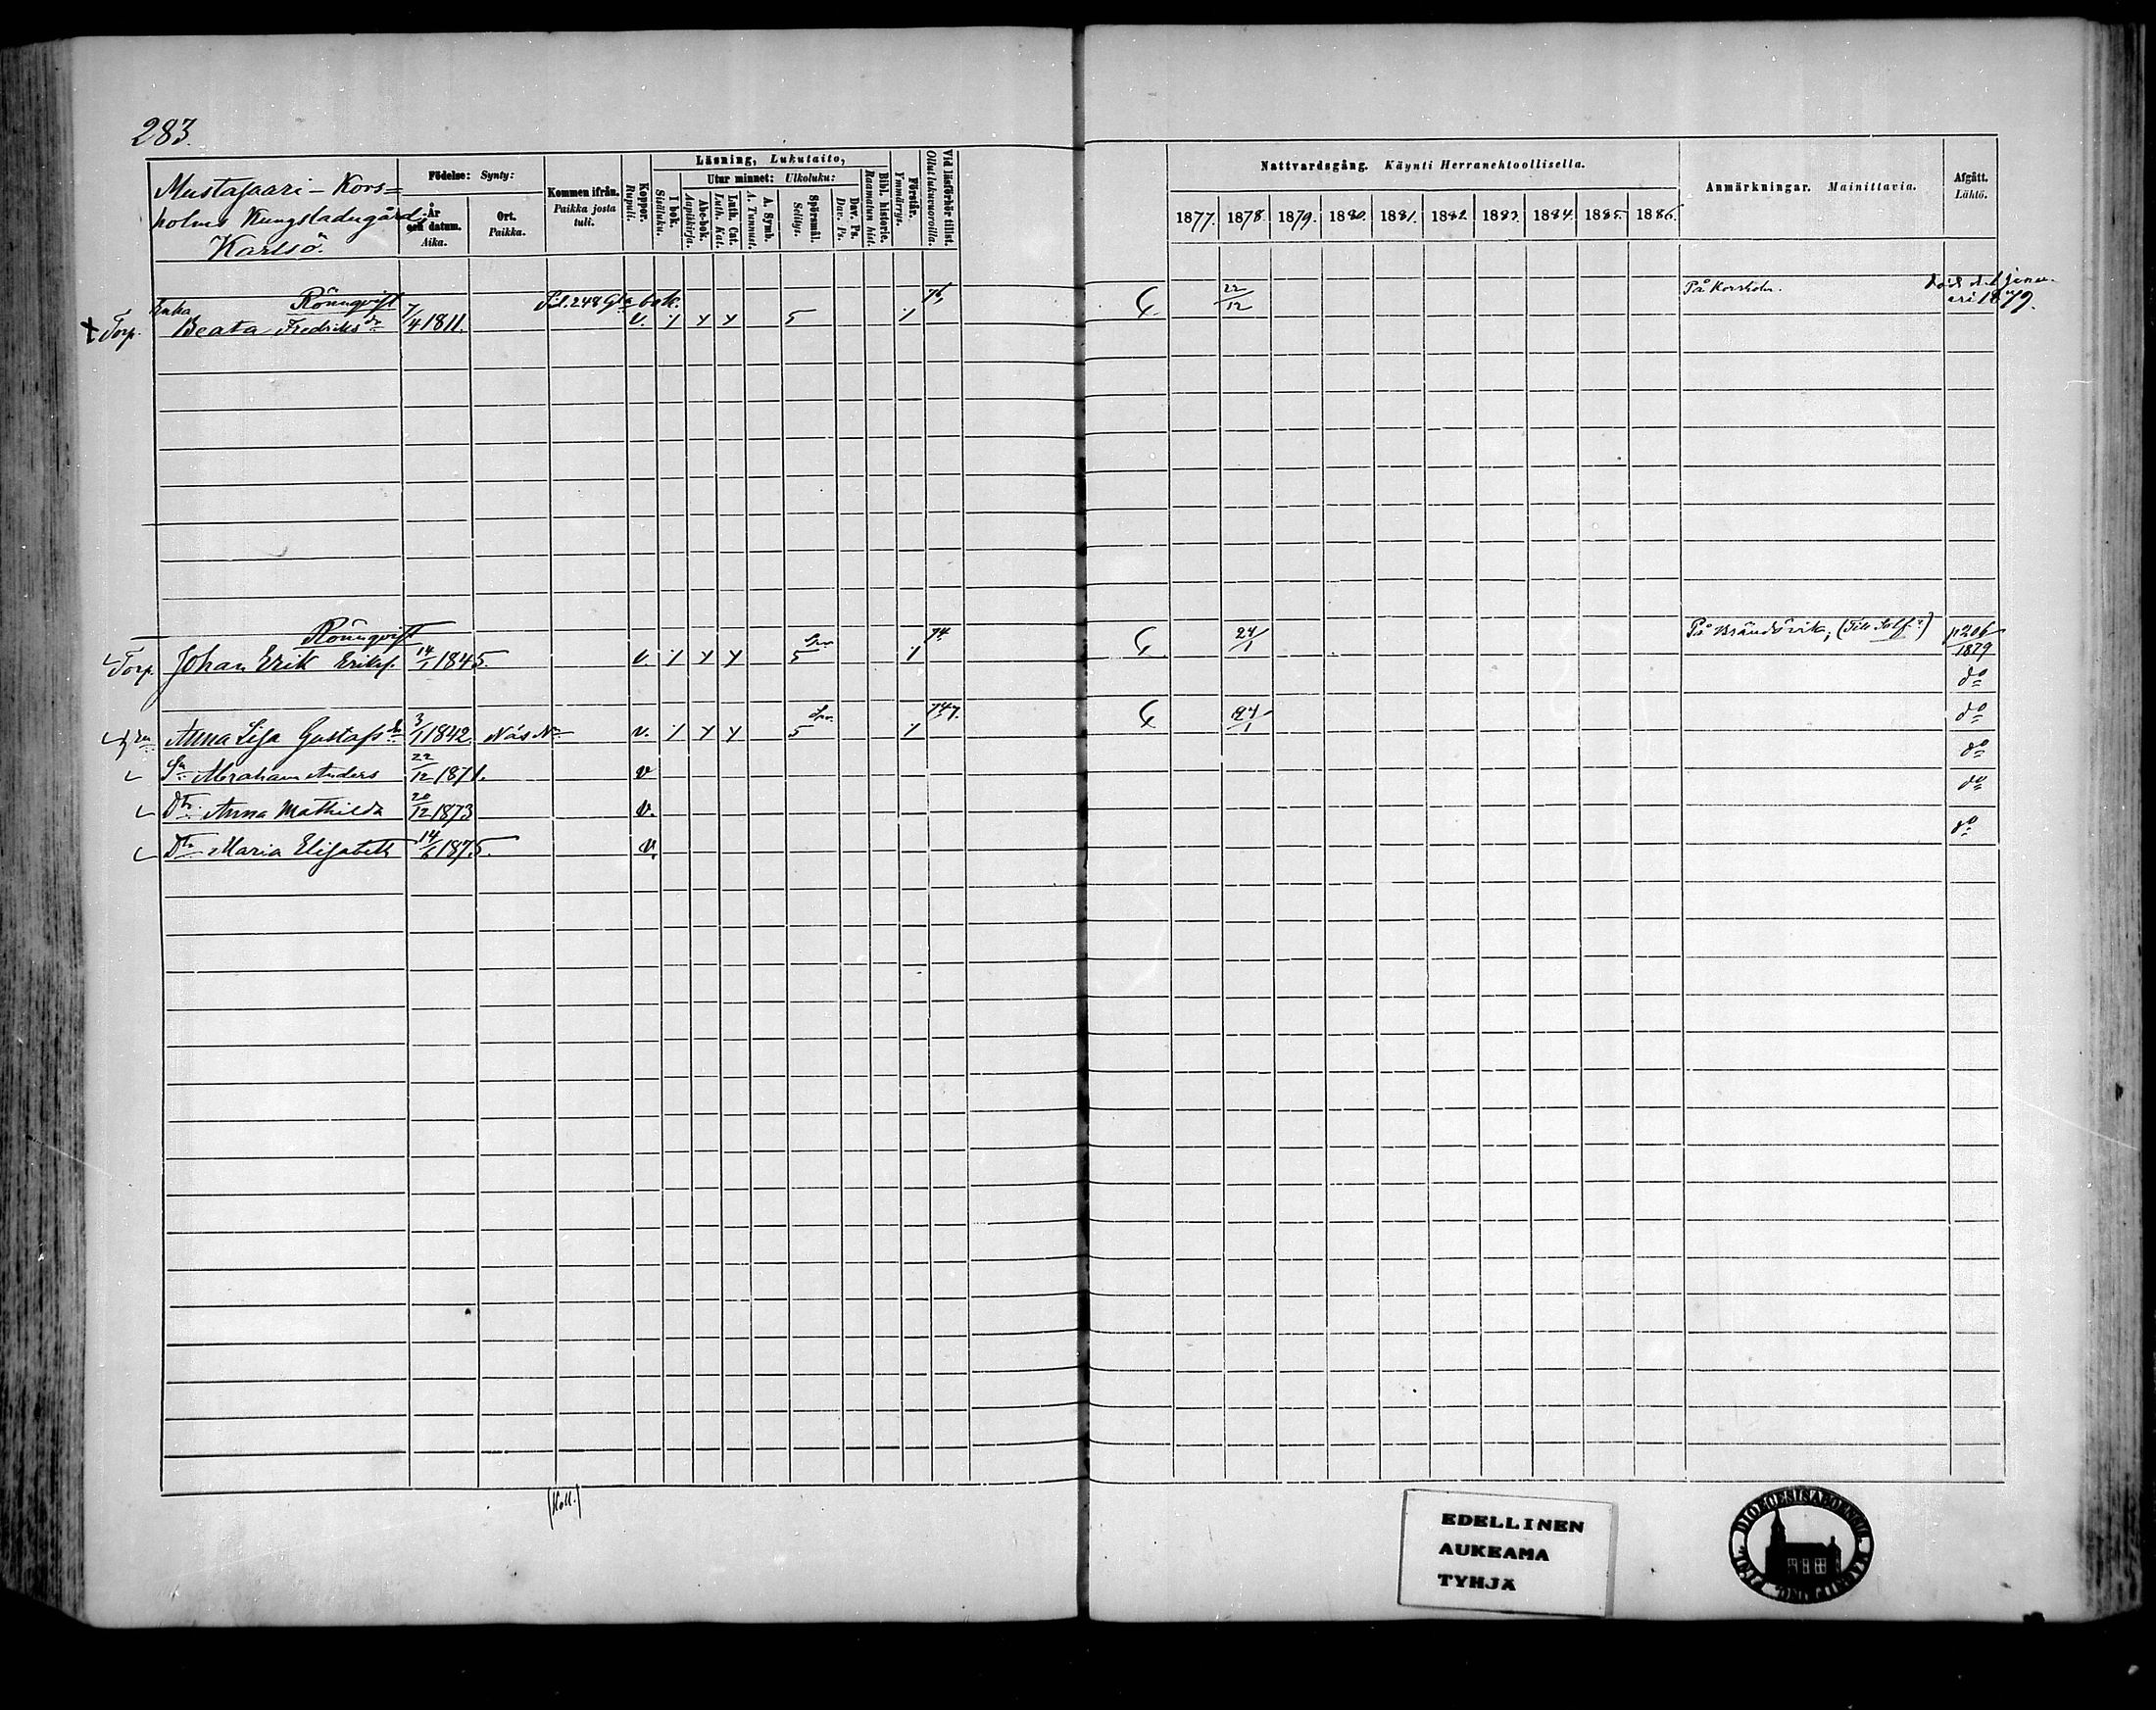 283.
Mustasaari-Kors=
holms Kungsladugård.
Karlsö.
Födelse: Synty:
År och datum. Aika.
Ort. Paikka.
Kommen ifrån. Paikka josta tuli.
Koppor. Rupuli.
Läsning, Lukutaito,
I bok. Sisäluku.
Utur minnet: Ulkoluku:
Abc-bok. Aapiskirja.
Luth. Cat. Luth. Kat.
A. Symb. A. Tunnust.
Spörsmål. Selitys.
Dav. Ps. Dav. Ps.
Bibl. historie. Raamatun hist.
Förstår. Ymmärrys.
Vid läsförhör tillst. Ollut lukuvuoroilla.
Nattvardsgång. Käynti Herranehtoollisella.
1877. 1878. 1879. 1880. 1881. 1882. 1883. 1884. 1885. 1886.
Anmärkningar. Mainittavia.
Afgått. Lähtö.
Enka Rönnqvist Pid. 248 Gla bok. 76, 22/12 På Korsholm. död d. 1 janu-
ari 1879.
Torp. Beata Fredriksdr 7/4 1811. v. 5
Rönnqvist 74 24/1 På Brändövik, p 206
Torp. Johan Erik Eriks. 14/1 1845. v. 5 1879
do
Anna Lisa Gustafsdr 3/1 1842. Näs N v. 5 747. 24/1 do
Sn Abraham Anders 22/12 1871. v do
Dtr. Anna Mathilda 20/12 1873 v. do
Dtr Maria Elisabeth 14/6 1875. v. do
EDELLINEN
AUKEAMA
TYHJÄ